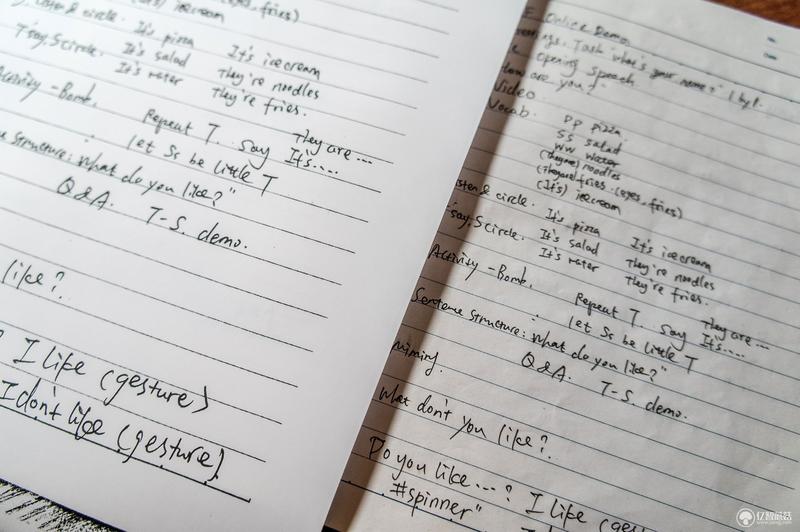 Listen & circle. It's pizza It's icecream
T say, S circle. It's salad They're noodles
It's water They're fries.
Activity - Bomb. Repeat T. say They are ...
let Ss be little T It's....
structure: What do you like?"
Q&A. T-S. demo.
like?
? I like (gesture)
I don't like (gesture)
Online Demo
Task "what's your name?" 1 by 1.
Opening Speech
How are you?
Video
Vocab. PP pizza
SS salad
WW water
(They're) noodles
(They're) fries. (eyes-fries)
(It's) icecream
Listen & circle. It's pizza It's icecream
T say, S circle. It's salad They're noodles
It's water They're fries.
Activity - Bomb. Repeat T. say They are ...
let Ss be little T It's....
Sentence structure: What do you like?"
Q&A. T-S. demo.
What don't you like?
Do you like...? I like (ges
#spinner"
亿智蘑菇